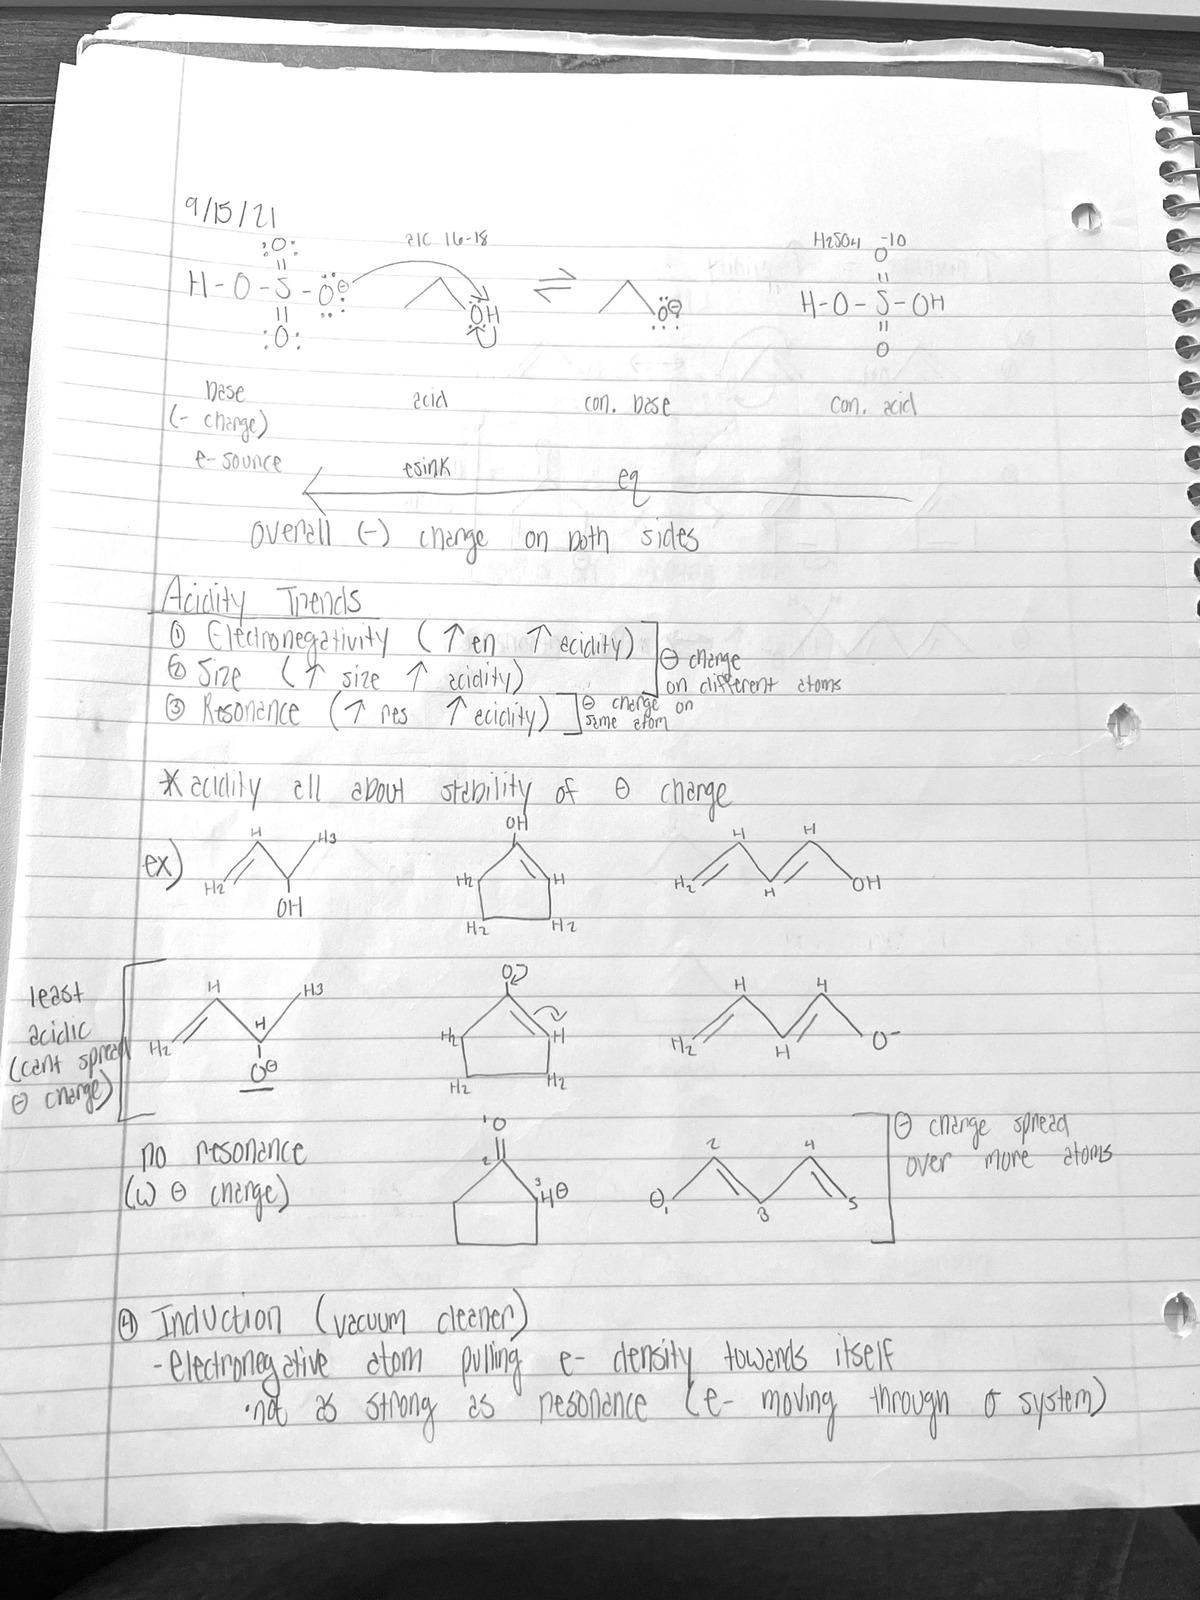 9/15/21
alc 16-18
H2SO4 -10
:O:
O
H-O-S-O⊖
OH
⇌
O⊖
H-O-S-OH
:O:
O
base acid con. base con. acid
(- charge)
e- source esink eq
overall (-) charge on both sides
Acidity Trends
① Electronegativity (↑ en ↑ acidity)
⊖ charge
② Size (↑ size ↑ acidity)
on different atoms
③ Resonance (↑ res ↑ acidity)
⊖ charge on
same atom
* acidity all about stability of ⊖ charge
ex)
H H3 OH H H
H2 H2 H H2 H OH
OH H2 H2
least
acidic
(cant spread
⊖ charge)
H H3 O H 4
H2 H H2 H H2 H O-
O⊖ H2 H2
no resonance
(w ⊖ charge)
1 O
2 3 4⊖
⊖ 1 2 3 4 5
⊖ charge spread
over more atoms
④ Induction (vacuum cleaner)
- electronegative atom pulling e- density towards itself
·not as strong as resonance (e- moving through σ system)